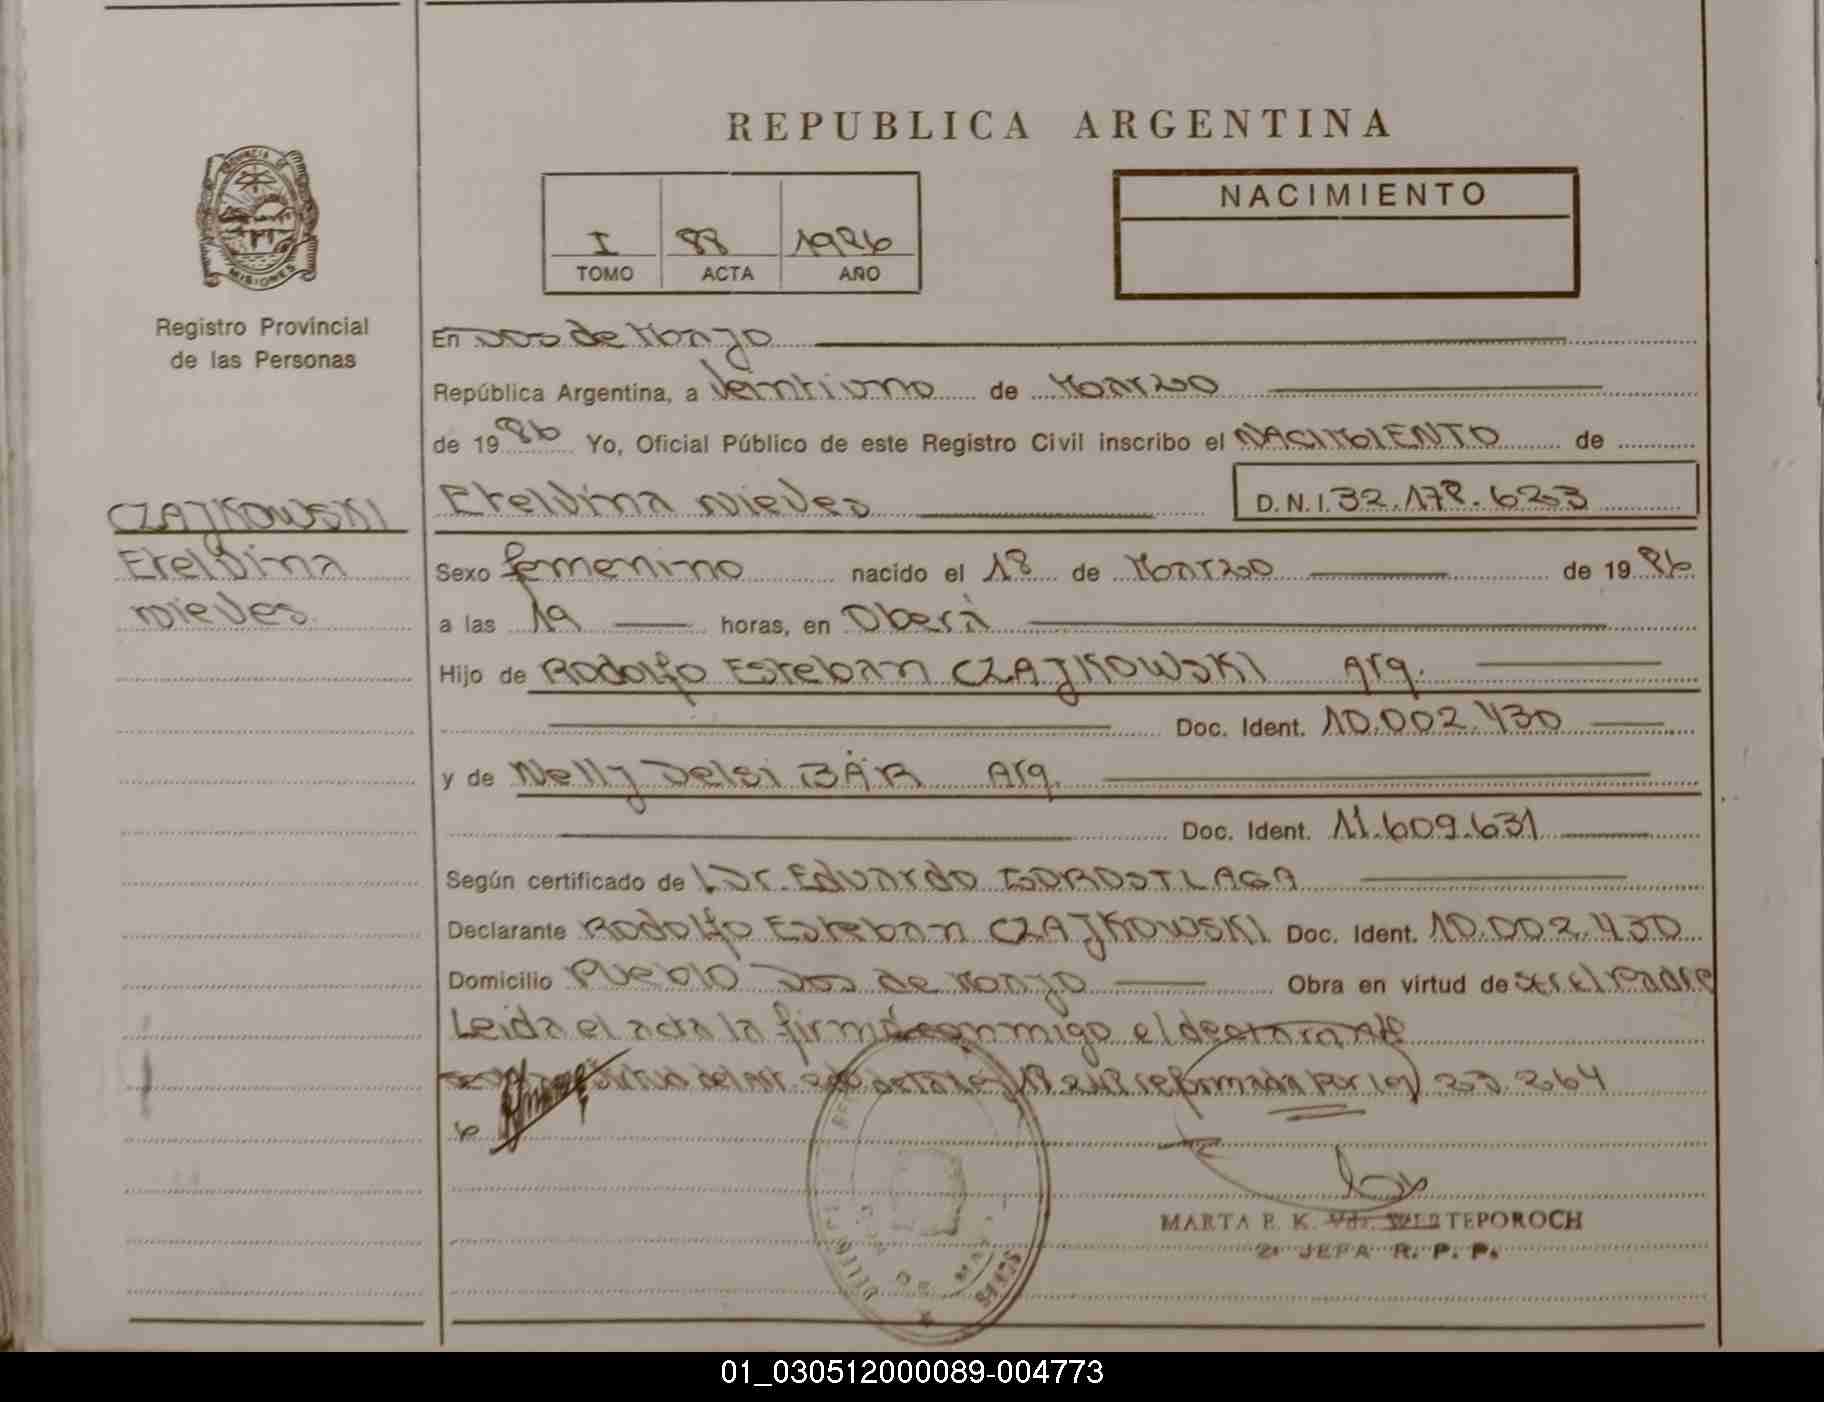 REPUBLICA ARGENTINA
NACIMIENTO
I 88 1986
TOMO ACTA AÑO
PROVINCIA DE
MISIONES
Registro Provincial
de las Personas
En Dos de Mayo
República Argentina, a Veintiuno de Marzo
de 1986 Yo, Oficial Público de este Registro Civil inscribo el NACIMIENTO de
Etelvina Nieves D.N.I. 32.178.623
CZAJKOWSKI
Etelvina
Nieves
Sexo femenino nacido el 18 de Marzo de 1986
a las 19 horas, en Oberá
Hijo de Rodolfo Esteban CZAJKOWSKI Arg.
Doc. Ident. 10.002.430
y de Nelly Delsi BÄR Arg.
Doc. Ident. 11.609.631
Según certificado de Dr. Eduardo GOROSTIAGA
Declarante Rodolfo Esteban CZAJKOWSKI Doc. Ident. 10.002.430
Domicilio Pueblo Dos de Mayo Obra en virtud de ser el Padre
Leida el acta la firma conmigo el declarante
virtud del art. de la ley 18.248 reformada por ley 23.264
MARTA E. K. Vda. TEPOROCH
JEFA R. P. P.
01_030512000089-004773